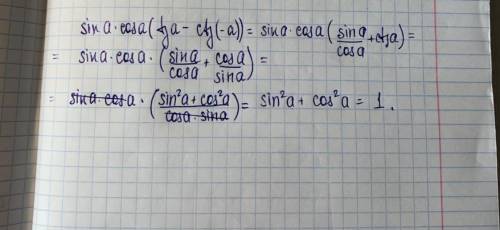 sina·cosa(tga - ctg(-a)) = sina·cosa(sina/cosa + ctga) =
= sina·cosa·(sina/cosa + cosa/sina) =
= sina·cosa·(sin²a+cos²a/cosa·sina) = sin²a + cos²a = 1.